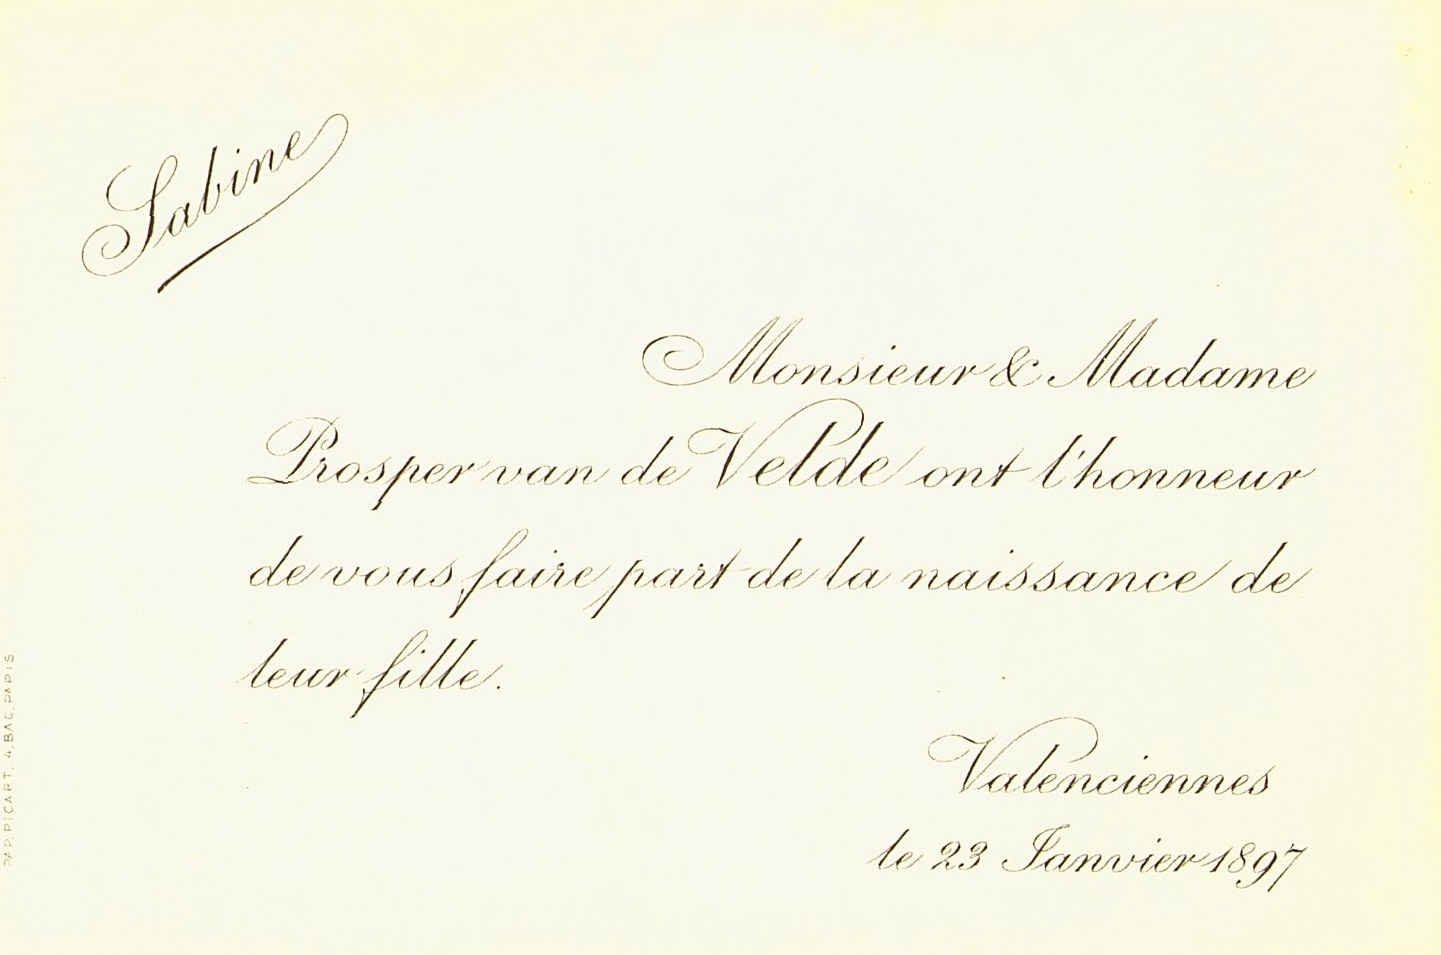 Sabine
Monsieur & Madame
Prosper van de Velde ont l'honneur
de vous faire part de la naissance de
leur fille.
Valenciennes
le 23 Janvier 1897
PAP. PICART, 4, BAC, PARIS